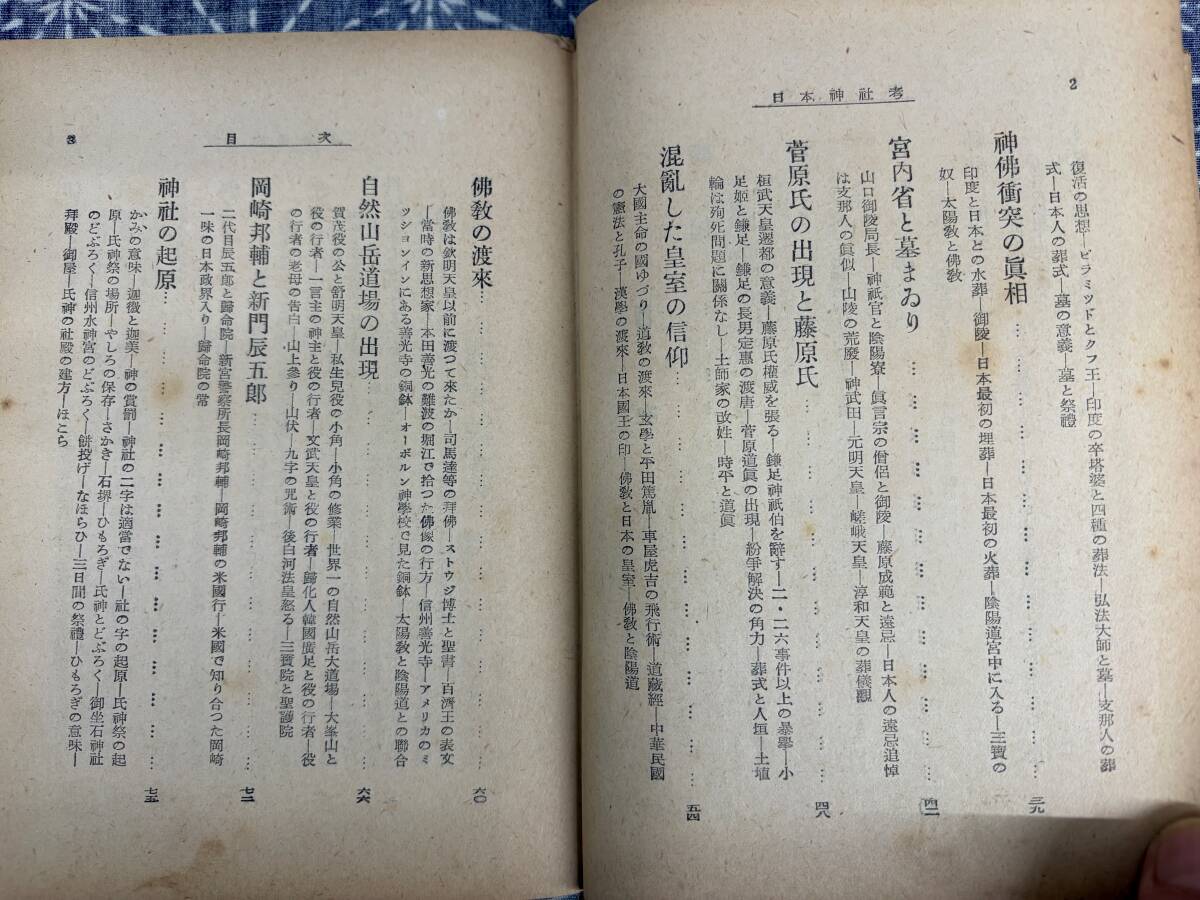 2
日本神社考
復活の思想―ピラミツドとクフ王―印度の卒塔婆と四種の葬法―弘法大師と墓―支那人の葬
式―日本人の葬式―墓の意義―墓と祭禮
神佛衝突の眞相…………三九
印度と日本との水葬―御陵―日本最初の埋葬―日本最初の火葬―陰陽道宮中に入る―三寶の
奴―太陽敎と佛敎
宮内省と墓まゐり…………四二
山口御陵局長―神祇官と陰陽寮―眞言宗の僧侶と御陵―藤原成範と遠忌―日本人の遠忌追悼
は支那人の眞似―山陵の荒廢―神武田―元明天皇―嵯峨天皇―淳和天皇の葬儀觀
菅原氏の出現と藤原氏…………四八
桓武天皇遷都の意義―藤原氏權威を張る―鎌足神祇伯を辭す―二・二六事件以上の暴擧―小
足姫と鎌足―鎌足の長男定惠の渡唐―菅原道眞の出現―紛爭解決の角力―葬式と人垣―土埴
輪は殉死問題に關係なし―土師家の改姓―時平と道眞
混亂した皇室の信仰…………五四
大國主命の國ゆづり―道敎の渡來―玄學と平田篤胤―車屋虎吉の飛行術―道藏經―中華民國
の憲法と孔子―漢學の渡來―日本國王の印―佛敎と日本の皇室―佛敎と陰陽道
目次
3
佛敎の渡來…………六〇
佛敎は欽明天皇以前に渡つて來たか―司馬達等の拜佛―ストウジ博士と聖書―百濟王の表文
―當時の新思想家―本田善光の難波の堀江で拾つた佛像の行方―信州善光寺―アメリカのミ
ツシヨンインにある善光寺の銅鉢―オーボルン神學校で見た銅鉢―太陽敎と陰陽道との聯合
自然山岳道場の出現…………六六
賀茂役の公と舒明天皇―私生兒役の小角―小角の修業―世界一の自然山岳大道場―大峯山と
役の行者―一言主の神主と役の行者―文武天皇と役の行者―歸化人韓國廣足と役の行者―役
の行者の老母の告白―山上參り―山伏―九字の咒術―後白河法皇怒る―三寶院と聖護院
岡崎邦輔と新門辰五郎…………七二
二代目辰五郎と歸命院―新宮警察所長岡崎邦輔―岡崎邦輔の米國行―米國で知り合つた岡崎
一味の日本政界入り―歸命院の常
神社の起原…………七五
かみの意味―迦微と迦美―神の賞罰―神社の二字は適當でない―社の字の起原―氏神祭の起
原―氏神祭の場所―やしろの保存―さかき―石堺―ひもろぎ―氏神とどぶろく―御坐石神社
のどぶろく―信州水神宮のどぶろく―餅投げ―なほらひ―三日間の祭禮―ひもろぎの意味―
拜殿―御屋―氏神の社殿の建方―ほこら